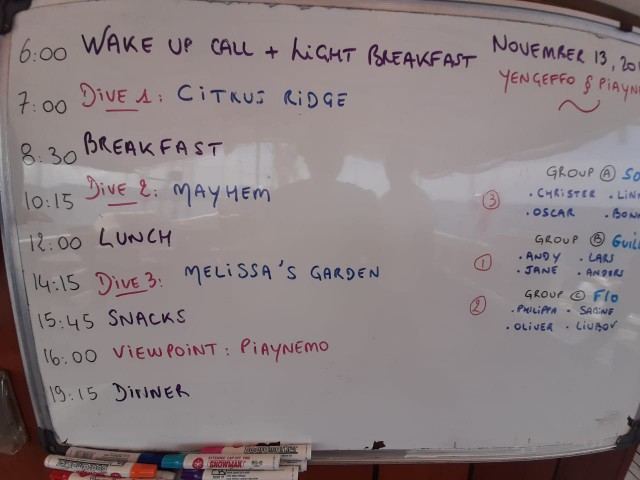 6:00 WAKE UP CALL + LIGHT BREAKFAST
7:00 DIVE 1: CITRUS RIDGE
8:30 BREAKFAST
10:15 DIVE 2: MAYHEM
12:00 LUNCH
14:15 DIVE 3: MELISSA'S GARDEN
15:45 SNACKS
16:00 VIEWPOINT: PIAYNEMO
19:15 DINNER
NOVEMBER 13, 20
YENGEFFO & PIAYNE
GROUP A SO
3 • CHRISTER • LIN
• OSCAR • BON
GROUP B GUILL
1 • ANDY • LARS
• JANE • ANDERS
GROUP C FLO
2 • PHILIPPA • SABINE
• OLIVER • LIUBOV
SNOWMAN